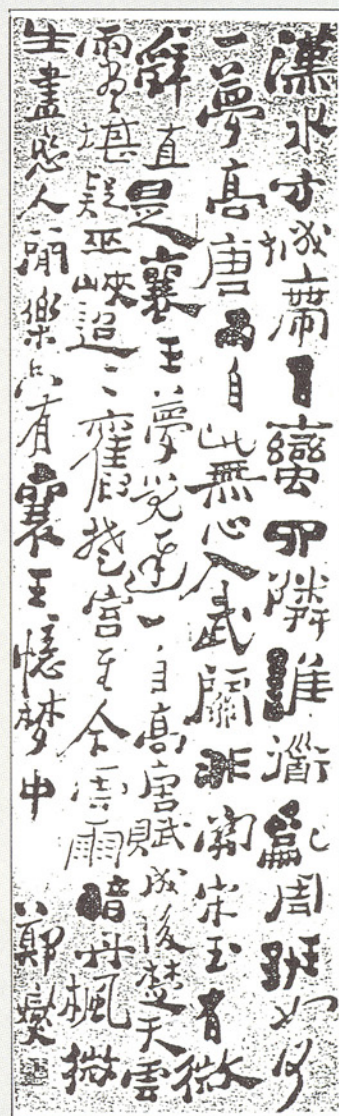 漢水方城帶百蠻四隣誰道亂周班如何
一夢高唐雨自此無心入武關非關宋玉有微
辭直是襄王夢覺遲一自高唐賦成後楚天雲
雨盡堪疑巫峽迢〻舊楚宮至今雲雨暗丹楓微
生盡戀人間樂只有襄王憶梦中 鄭燮